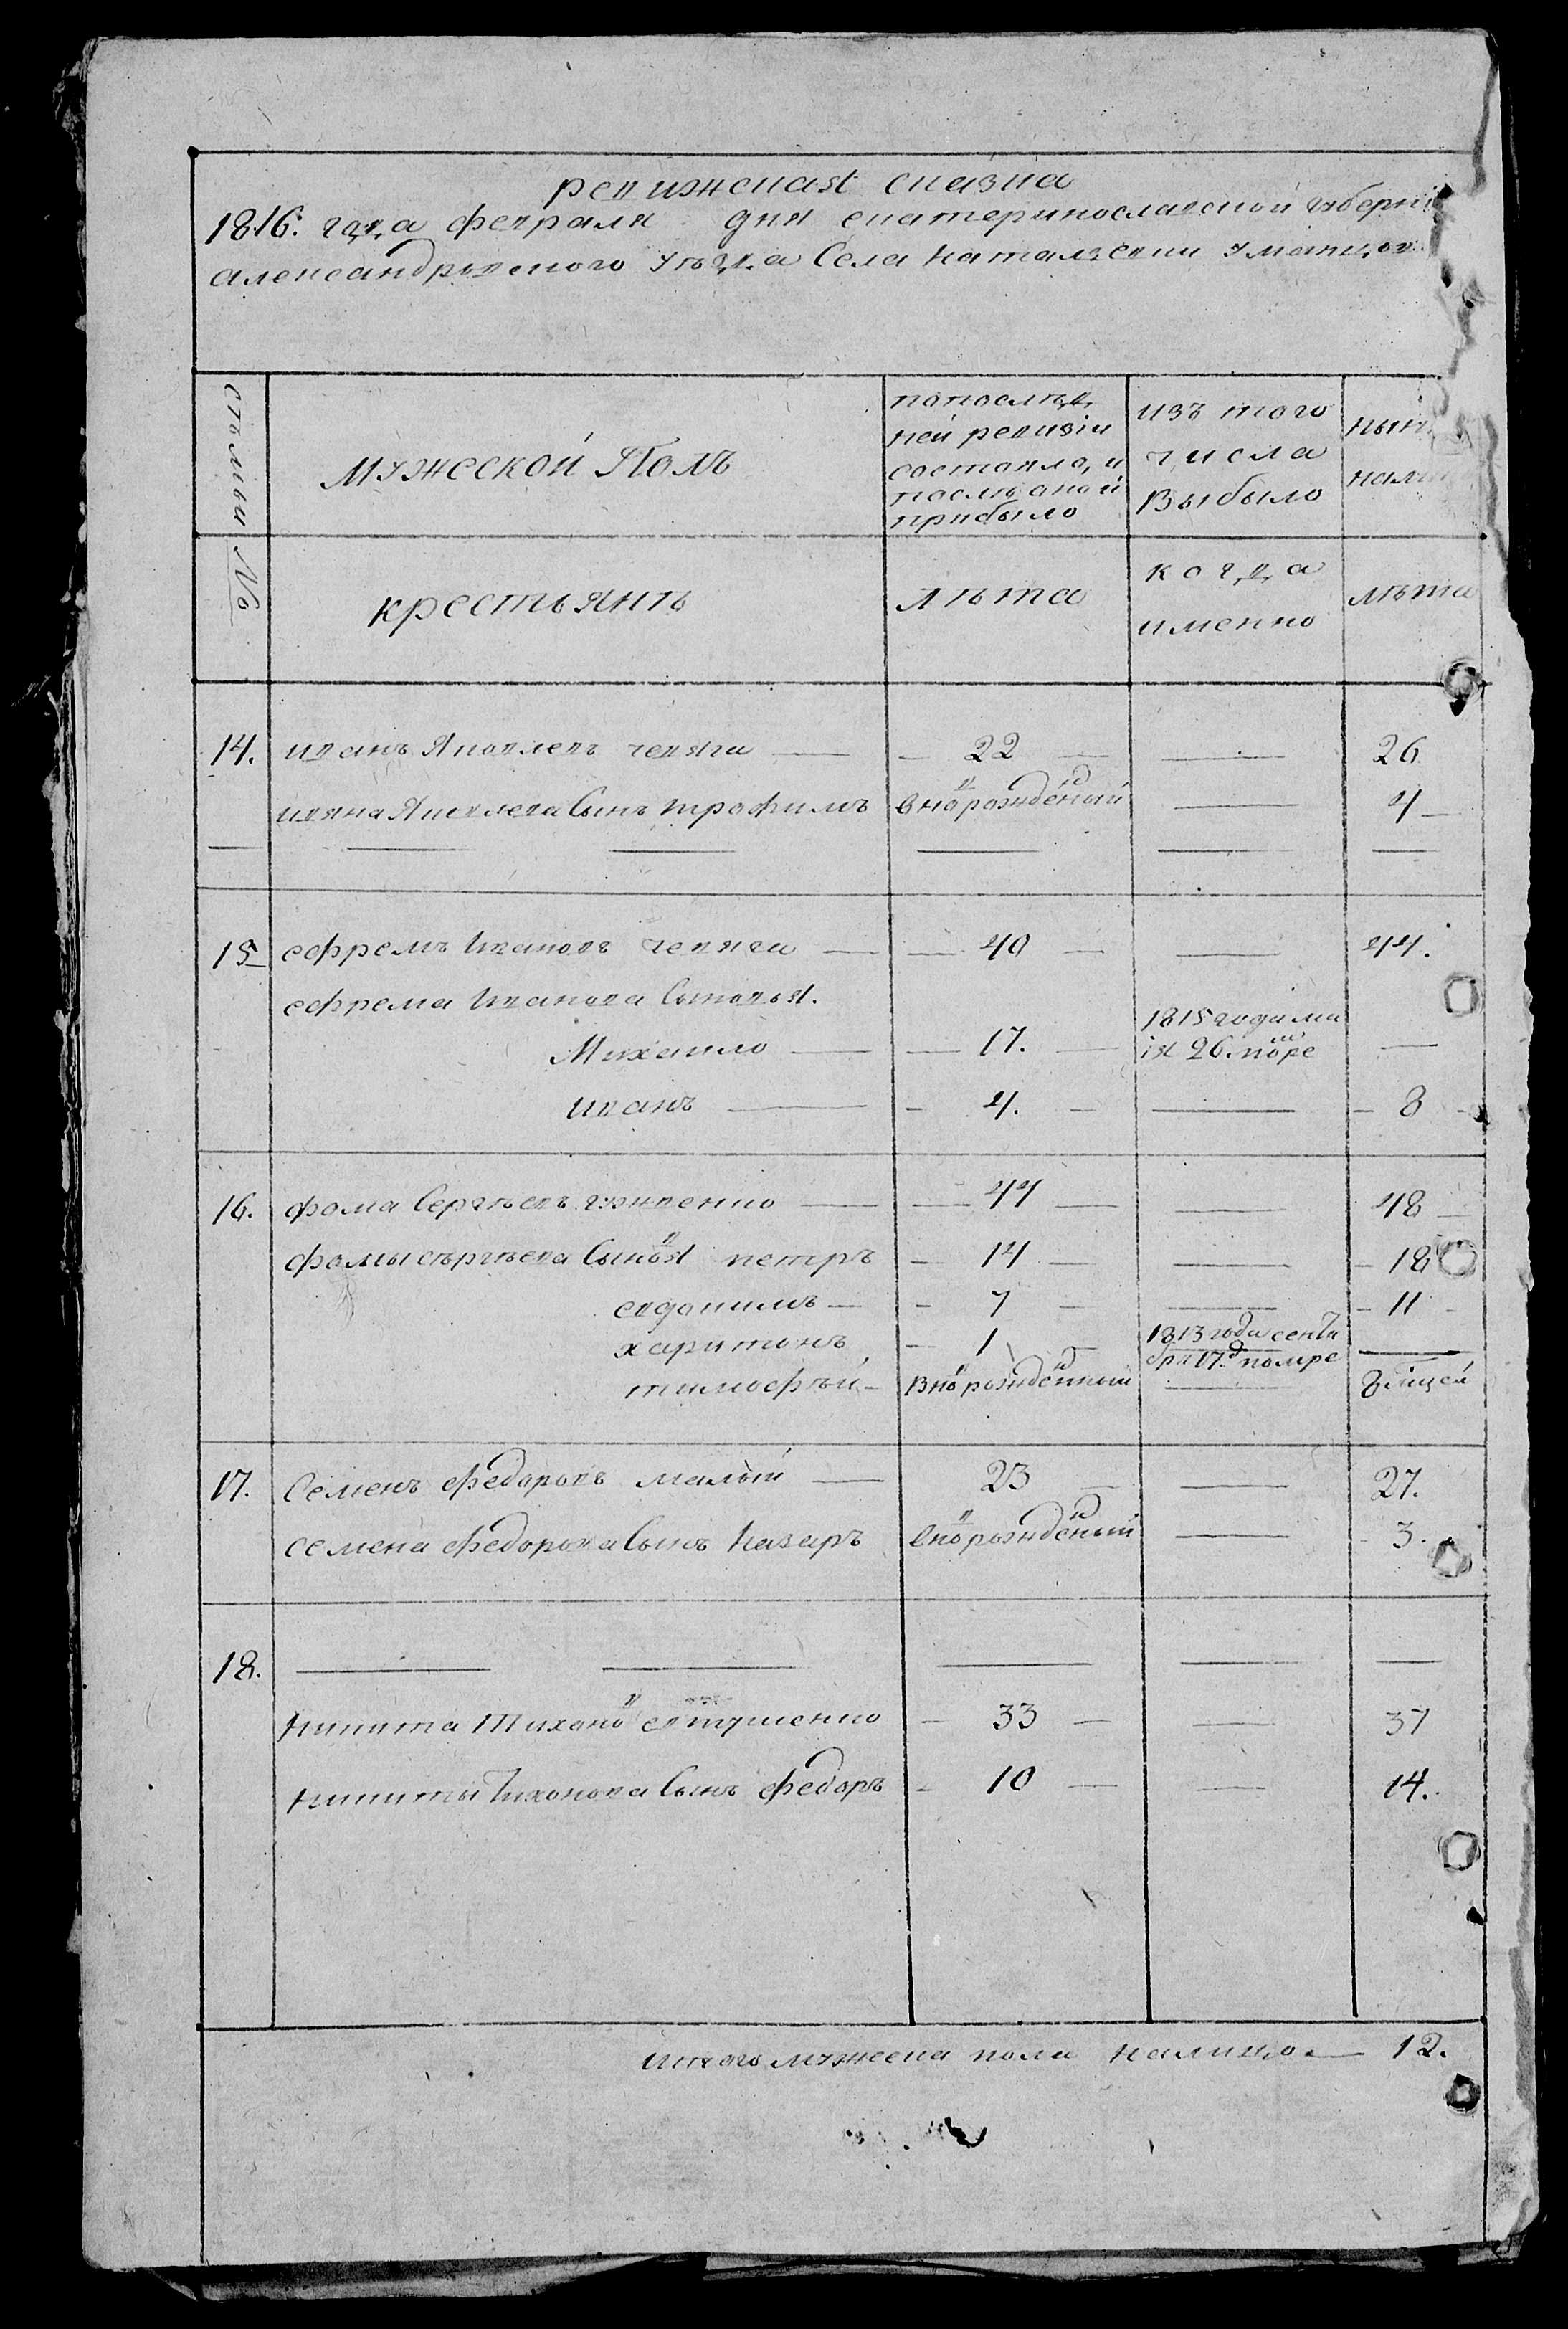 ревижская сказка
1816: года февраля дня екатеринославской губерни
александровского уезда Села Натальевки
мужеской Полъ
попослед
ней ревизіи
состояло, и
после оной
прибыло
изъ того
числа
выбыло
нын
нали
семьи №
крестьянъ
лѣта
когда
именно
лѣта
14. иванъ Яковлевъ чевяга — 22 — 26
ивана Яковлева Сынъ трофимъ вноворожденый — 4
15 ефремъ Ивановъ чевяга — 40 — 44.
ефрема Иванова Сыновья.
Михаило — 17. — 1815 года ма
ія 26. помре —
иванъ — 4. — 8
16. фома Сергѣевъ — 44 — 48
фомы сѣргѣева Сыновья петръ — 14 — 18
евдокимъ — 7 — 11
харитонъ — 1 1813 года сентя
бря 17.д помре —
тимофѣй — вноворожденный —
17. Семенъ федоровъ малый — 23 — 27.
семена федорова Сынъ Назаръ вноворожденый — 3.
18. —
Никита Тихоновъ евтушенко — 33 — 37
Никиты Тихонова Сынъ федоръ — 10 — 14.
итого мужеска пола налицо — 12.